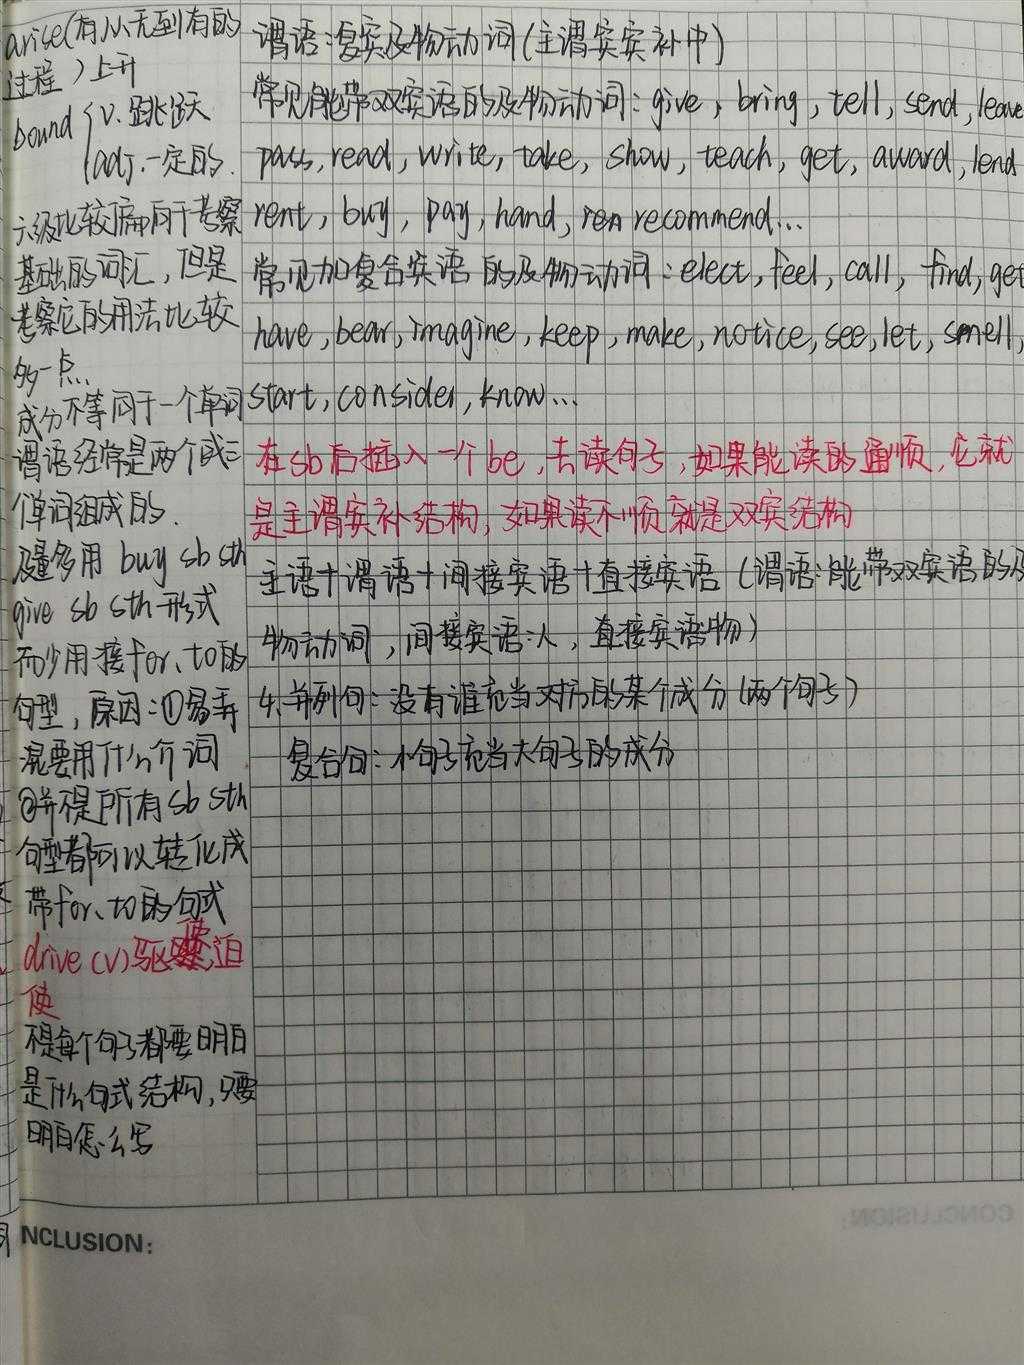 arise(有从无到有的
过程)上升
bound {v. 跳跃
adj. 一定的.
六级比较偏向于考察
基础的词汇, 但是
考察它的用法比较
多一点...
成分不等同于一个单词
谓语经常是两个或三
个单词组成的.
尽量多用 buy sb sth
give sb sth 形式
而少用接for、to的
句型, 原因:①易弄
混要用什么介词
②并不是所有sb sth
句型都可以转化成
带for、to的句式
drive (v) 驱使,迫
使
不是每个句子都要明白
是什么句式结构, 只要
明白怎么写
谓语:复宾及物动词(主谓宾宾补中)
常见能带双宾语的及物动词: give, bring, tell, send, leave
pass, read, write, take, show, teach, get, award, lend
rent, buy, pay, hand, recommend...
常见加复合宾语的及物动词: elect, feel, call, find, get
have, bear, imagine, keep, make, notice, see, let, smell,
start, consider, know...
在sb后插入一个be, 去读句子, 如果能读的通顺, 它就
是主谓宾补结构, 如果读不顺就是双宾结构
主语+谓语+间接宾语+直接宾语 (谓语:能带双宾语的及
物动词, 间接宾语:人, 直接宾语物)
4. 并列句: 没有谁充当对方的某个成分 (两个句子)
复合句: 小句子充当大句子的成分
NCLUSION: